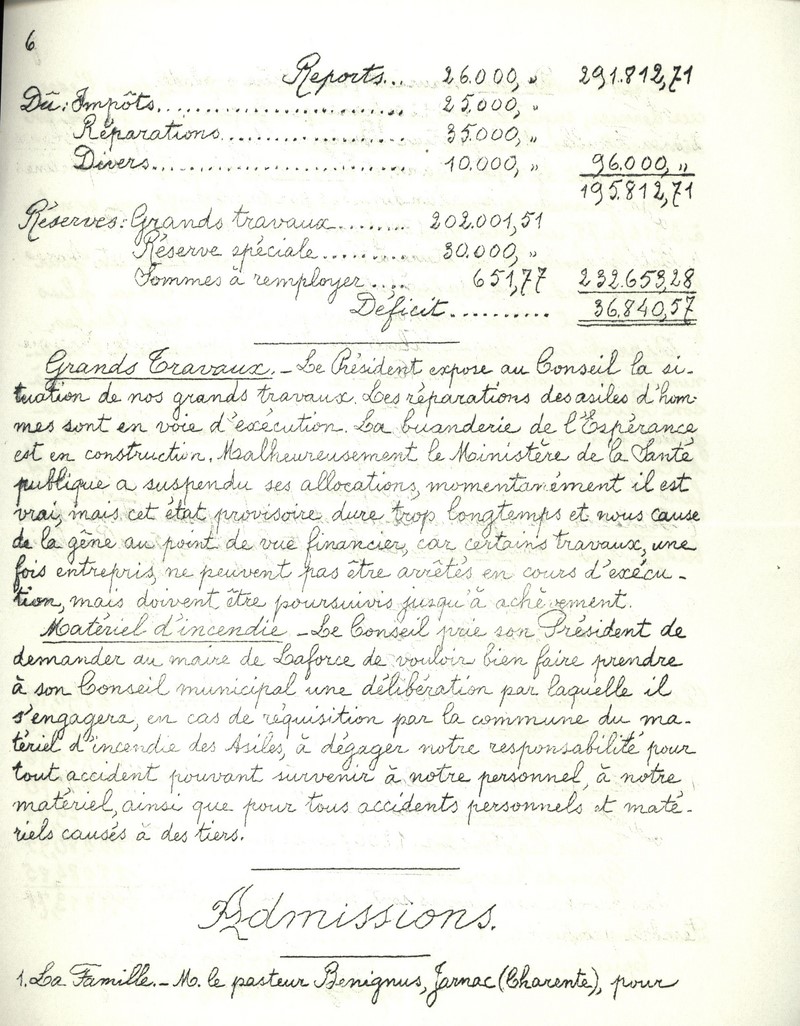 6
Reports... 26.000, " 291.812,71
Dû: Impôts........................... 25.000, "
Réparations.................... 35.000, "
Divers............................. 10.000, " 96.000, "
195.812,71
Réserves: Grands travaux........ 202.001,51
Réserve spéciale......... 30.000, "
Sommes à remployer.... 651,77 232.653,28
Déficit.......... 36.840,57
Grands Travaux. _ Le Président expose au Conseil la si-
tuation de nos grands travaux. Les réparations des asiles d'hom-
mes sont en voie d'exécution. La buanderie de l'Espérance
est en construction. Malheureusement le Ministère de la Santé
publique a suspendu ses allocations, momentanément il est
vrai, mais cet état provisoire dure trop longtemps et nous cause
de la gêne au point de vue financier, car certains travaux, une
fois entrepris, ne peuvent pas être arrêtés en cours d'exécu-
tion, mais doivent être poursuivis jusqu'à achèvement.
Matériel d'incendie _ Le Conseil prie son Président de
demander au maire de Laforce de vouloir bien faire prendre
à son Conseil municipal une délibération par laquelle il
s'engagera, en cas de réquisition par la commune du ma-
tériel d'incendie des Asiles, à dégager notre responsabilité pour
tout accident pouvant survenir à notre personnel, à notre
matériel, ainsi que pour tous accidents personnels et maté-
riels causés à des tiers.
Admissions.
1. La Famille. _ M. le pasteur Benignus, Jarnac (Charente), pour